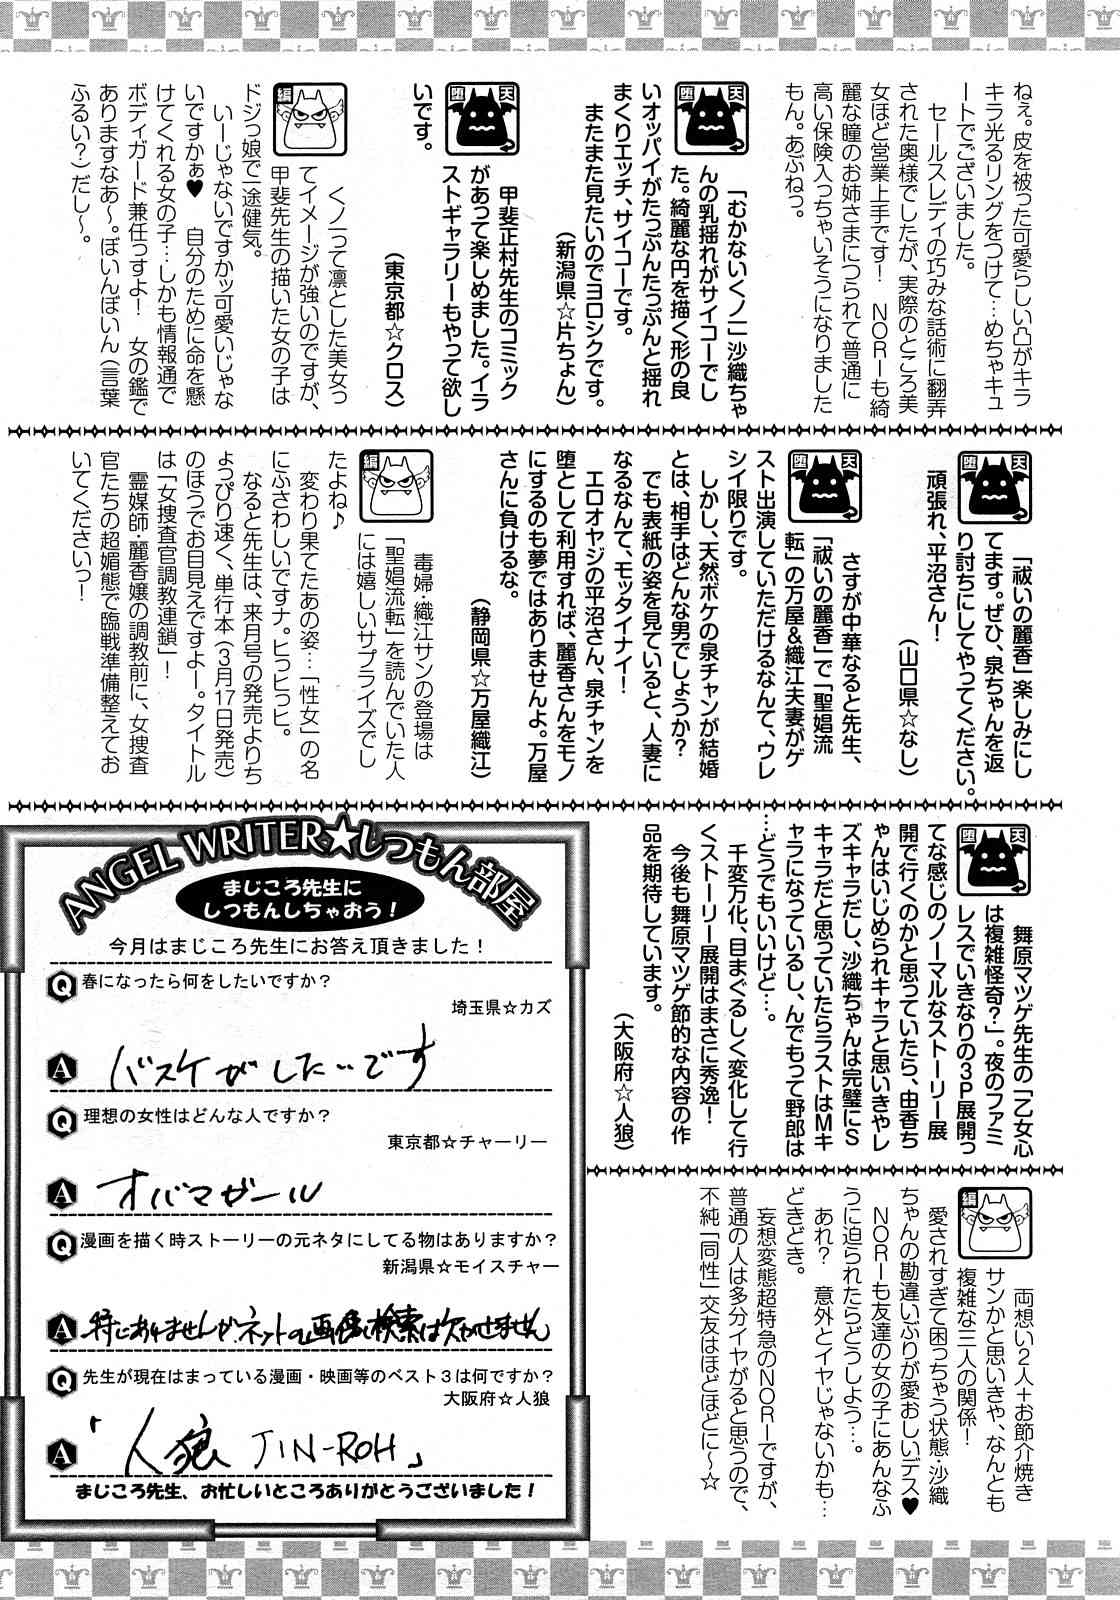 ねぇ。皮を被った可愛らしい凸がキラ
キラ光るリングをつけて…めちゃキュ
ートでございました。
セールスレディの巧みな話術に翻弄
された奥様でしたが、実際のところ美
女ほど営業上手です！　NORーも綺
麗な瞳のお姉さまにつられて普通に
高い保険入っちゃいそうになりました
もん。あぶねっ。
天
堕
「むかないくノ一」沙織ちゃ
んの乳揺れがサイコーでし
た。綺麗な円を描く形の良
いオッパイがたっぷんたっぷんと揺れ
まくりエッチ、サイコーです。
またまた見たいのでヨロシクです。
（新潟県☆片ちょん）
天
堕
甲斐正村先生のコミック
があって楽しめました。イラ
ストギャラリーもやって欲し
いです。
（東京都☆クロス）
編
くノ一って凛とした美女っ
てイメージが強いのですが、
甲斐先生の描いた女の子は
ドジっ娘で一途健気。
いーじゃないですかッ可愛いじゃな
いですかぁ♥　自分のために命を懸
けてくれる女の子…しかも情報通で
ボディガード兼任っすよ！　女の鑑で
ありますなあ〜。ぼいんぼいん（言葉
ふるい？）だし〜。
天
堕
「祓いの麗香」楽しみにし
てます。ぜひ、泉ちゃんを返
り討ちにしてやってください。
頑張れ、平沼さん！
（山口県☆なし）
天
堕
さすが中華なると先生、
「祓いの麗香」で「聖娼流
転」の万屋＆織江夫妻がゲ
スト出演していただけるなんて、ウレ
シイ限りです。
しかし、天然ボケの泉チャンが結婚
とは、相手はどんな男でしょうか？
でも表紙の姿を見ていると、人妻に
なるなんて、モッタイナイ！
エロオヤジの平沼さん、泉チャンを
堕として利用すれば、麗香さんをモノ
にするのも夢ではありませんよ。万屋
さんに負けるな。
（静岡県☆万屋織江）
編
毒婦・織江サンの登場は
「聖娼流転」を読んでいた人
には嬉しいサプライズでし
たよね♪
変わり果てたあの姿…「性女」の名
にふさわしいですナ。ヒっヒっヒ。
なると先生は、来月号の発売よりち
ょっぴり速く、単行本（3月17日発売）
のほうでお目見えですよー。タイトル
は「女捜査官調教連鎖」！
霊媒師・麗香嬢の調教前に、女捜査
官たちの超媚態で臨戦準備整えてお
いてくださいっ！
天
堕
舞原マツゲ先生の「乙女心
は複雑怪奇？」。夜のファミ
レスでいきなりの3P展開っ
てな感じのノーマルなストーリー展
開で行くのかと思っていたら、由香ち
ゃんはいじめられキャラと思いきやレ
ズキャラだし、沙織ちゃんは完璧にS
キャラだと思っていたらラストはMキ
ャラになっているし、んでもって野郎は
…どうでもいいけど…。
千変万化、目まぐるしく変化して行
くストーリー展開はまさに秀逸！
今後も舞原マツゲ節的な内容の作
品を期待しています。
（大阪府☆人狼）
編
両想い2人＋お節介焼き
サンかと思いきや、なんとも
複雑な三人の関係！
愛されすぎて困っちゃう状態・沙織
ちゃんの勘違いぶりが愛おしいデス♥
NORーも友達の女の子にあんなふ
うに迫られたらどうしよう…。
あれ？　意外とイヤじゃないかも…
どきどき。
妄想変態超特急のNORーですが、
普通の人は多分イヤがると思うので、
不純「同性」交友はほどほどに〜☆
ANGEL WRITER★しつもん部屋
まじころ先生に
しつもんしちゃおう！
今月はまじころ先生にお答え頂きました！
Q 春になったら何をしたいですか？
埼玉県☆カズ
A バスケがしたいです
Q 理想の女性はどんな人ですか？
東京都☆チャーリー
A オバマガール
Q 漫画を描く時ストーリーの元ネタにしてる物はありますか？
新潟県☆モイスチャー
A 特にありませんがネットの画像検索は欠かせません
Q 先生が現在はまっている漫画・映画等のベスト3は何ですか？
大阪府☆人狼
A 「人狼 JIN-ROH」
まじころ先生、お忙しいところありがとうございました！